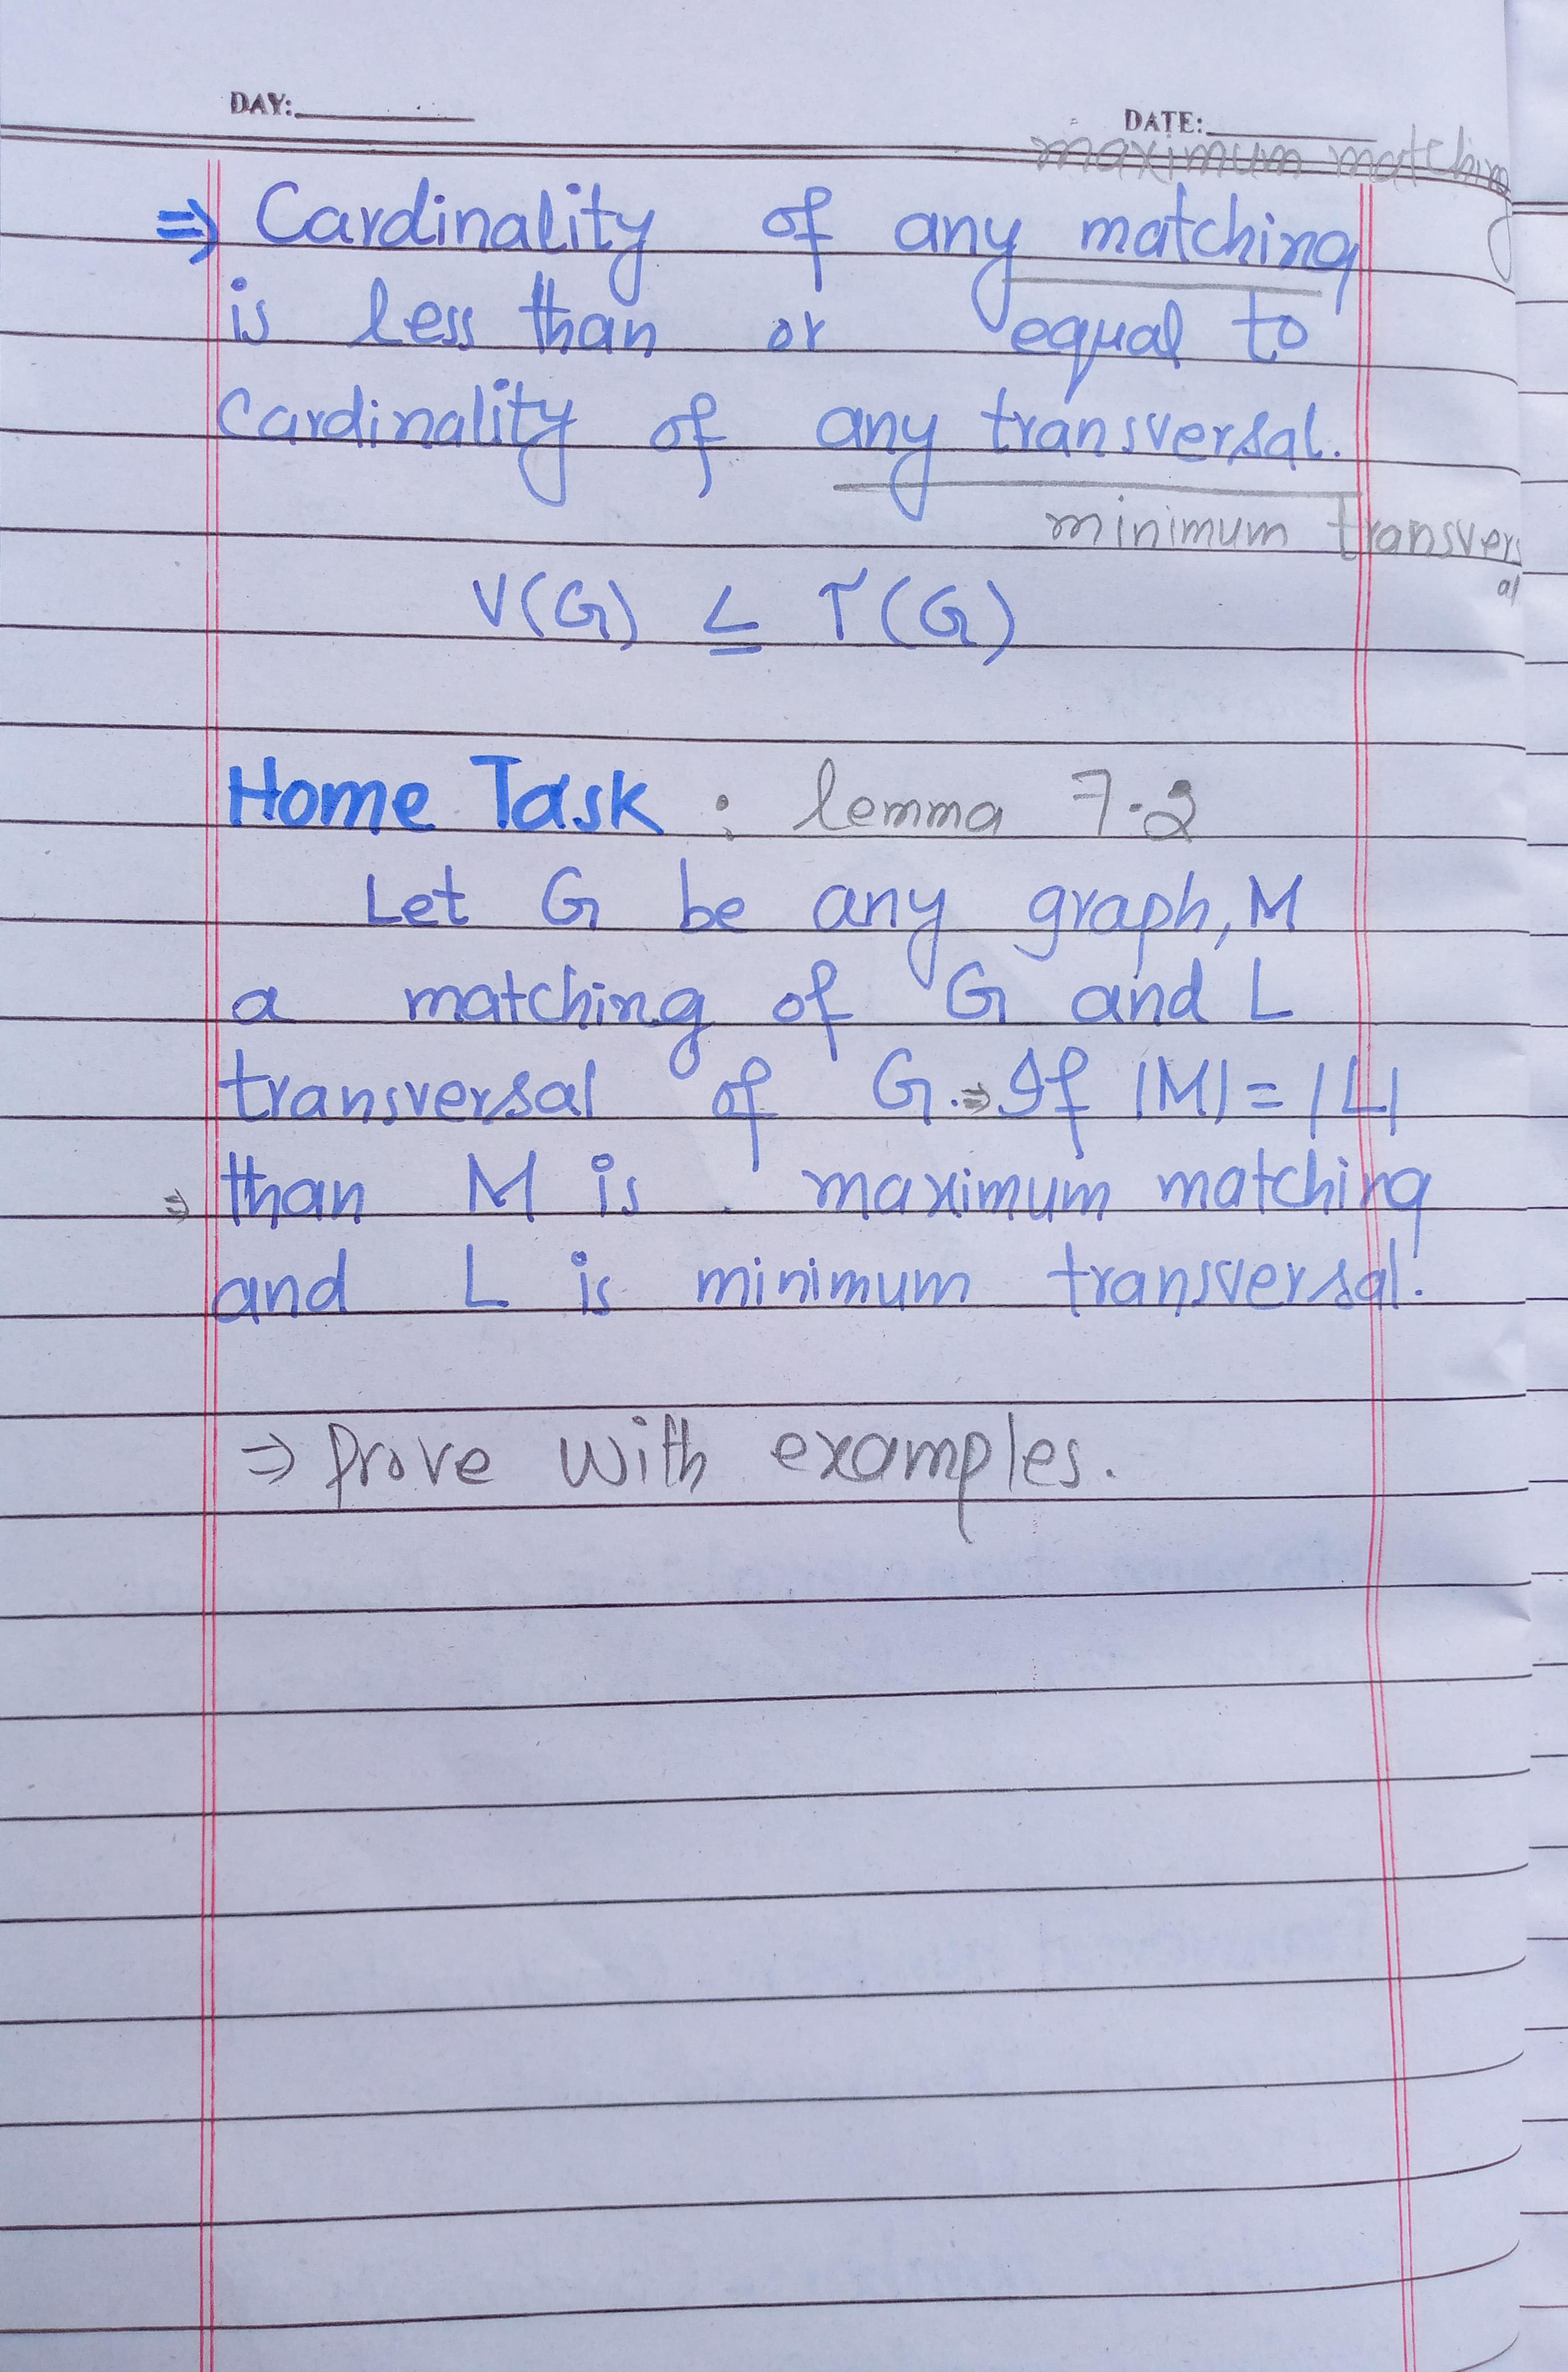 DAY:
DATE:
maximum matching
⇒ Cardinality of any matching
is less than or equal to
Cardinality of any transversal.
minimum transvers
al
ν(G) ≤ τ(G)
Home Task : lemma 7.2
Let G be any graph, M
a matching of G and L
transversal of G. ⇒ If |M| = |L|
⇒ than M is maximum matching
and L is minimum transversal.
⇒ Prove with examples.